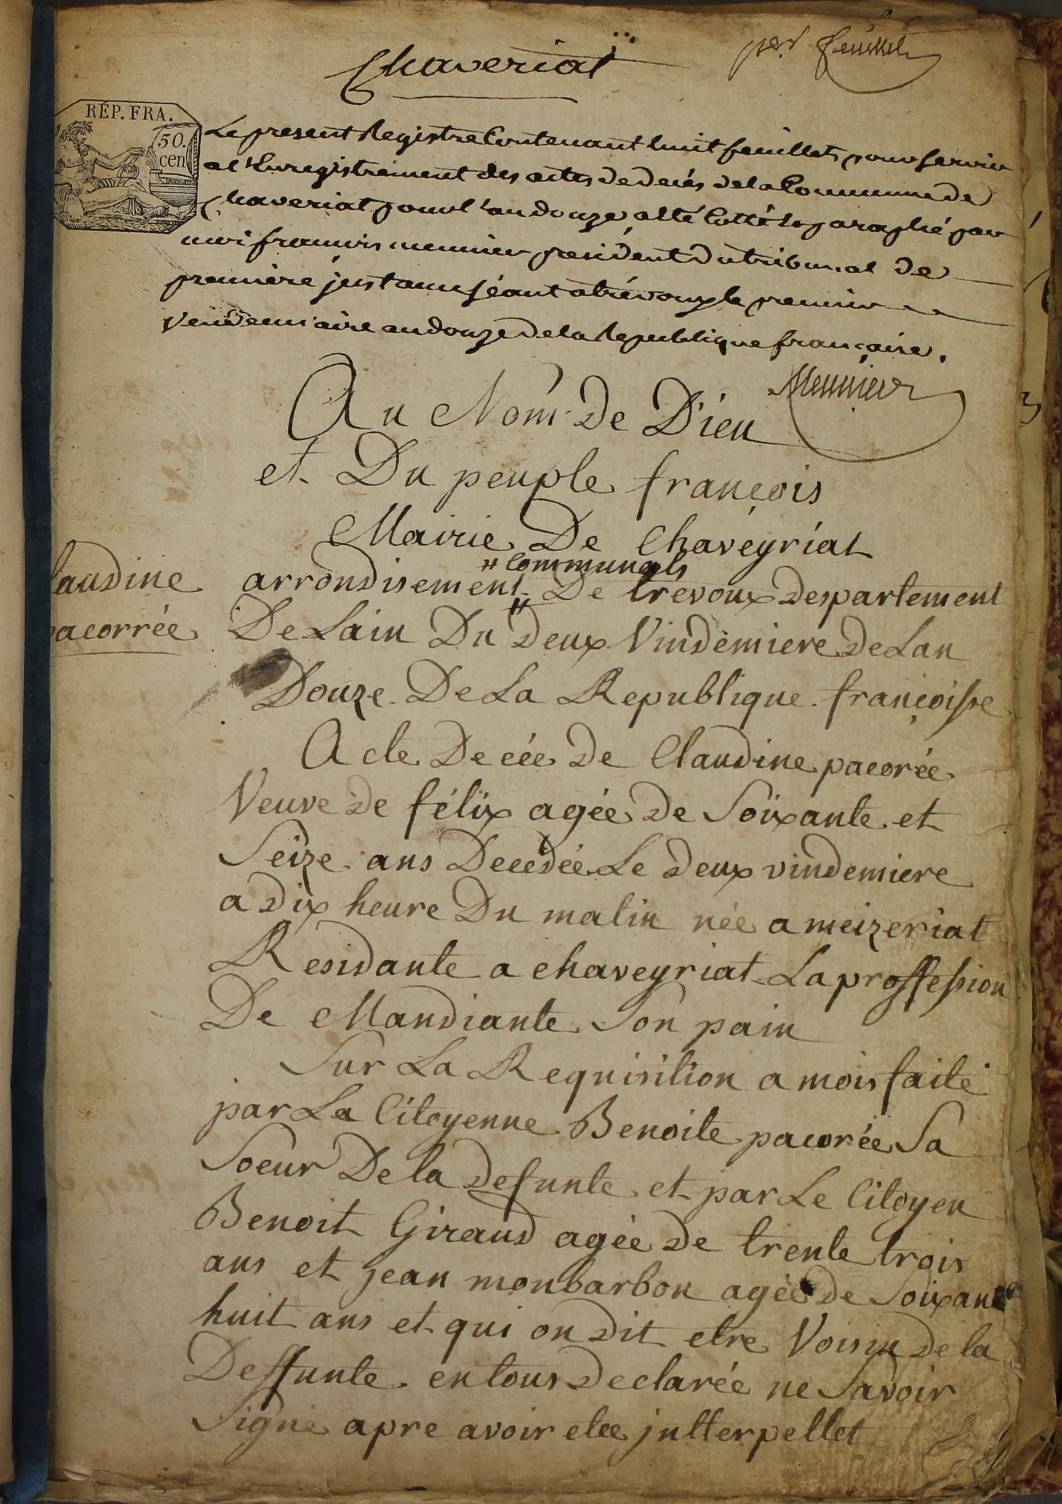 Chaveriat
per feuillet
RÉP. FRA.
50.
cen
Le present Registre Contenant huit feuillets pour servir
a l'Enregistrement des actes de decés de la Commune de
Chaveriat pour l'an douze a été Cotté et paraphé par
moi françois meunier president du tribunal de
premiere justance séant a trévoux le premier
Vendemiaire an douze de la Republique française.
Meunier
Au Nom De D'ieu
et Du peuple françois
Mairie De Chaveyriat
"Communals
laudine
arrondisement " De trevoux despartement
acorrée
De Lain Du deux Vindemiere de Lan
Douze De La Republique françoisse
Acte De cée de Claudine pacorée
Veuve de félix agée de Soixante et
Seize ans Decedée Le deux vindemiere
a dix heure Du matin née a meizeriat
Residante a chaveyriat La proffession
De Mandiante Son pain
Sur La Requisition a mois faite
par La Citoyenne Benoite pacorée Sa
Soeur De la defunte et par Le Citoyen
Benoit Giraud agée de trente trois
ans et jean monbarbon agée de Soixante
huit ans et qui on dit etre Voisin de la
Deffunte en tous declarée ne Savoir
Signe apre avoir etee jntterpellet